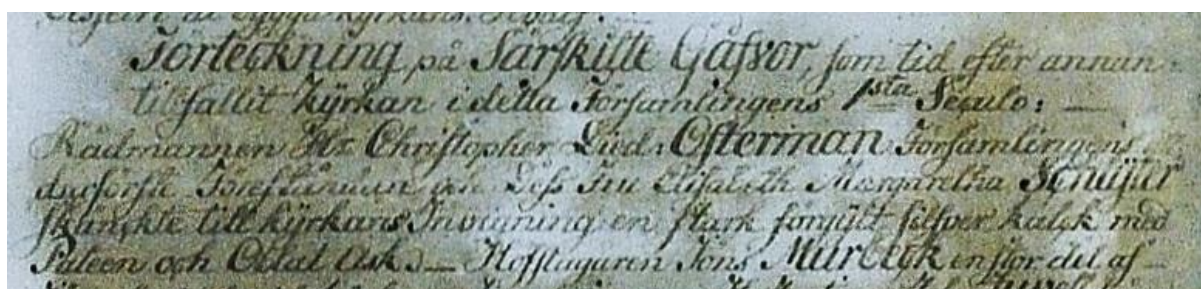 at bygga kyrkans
Förteckning på Särskilte Gåfvor, som tid efter annan
tilfallit Kyrkan i detta Församlingens 1sta Seculo: —
Rådmannen Hr Christopher Osterman Församlingens
Föreståndare och Dess Fru Elisabeth Margaretha
skänkte till kyrkans Inwigning en stark förgült silfver kalck med
Pateen och Oblat Ask. — Hofslagaren Jöns Murbeck en stor del af